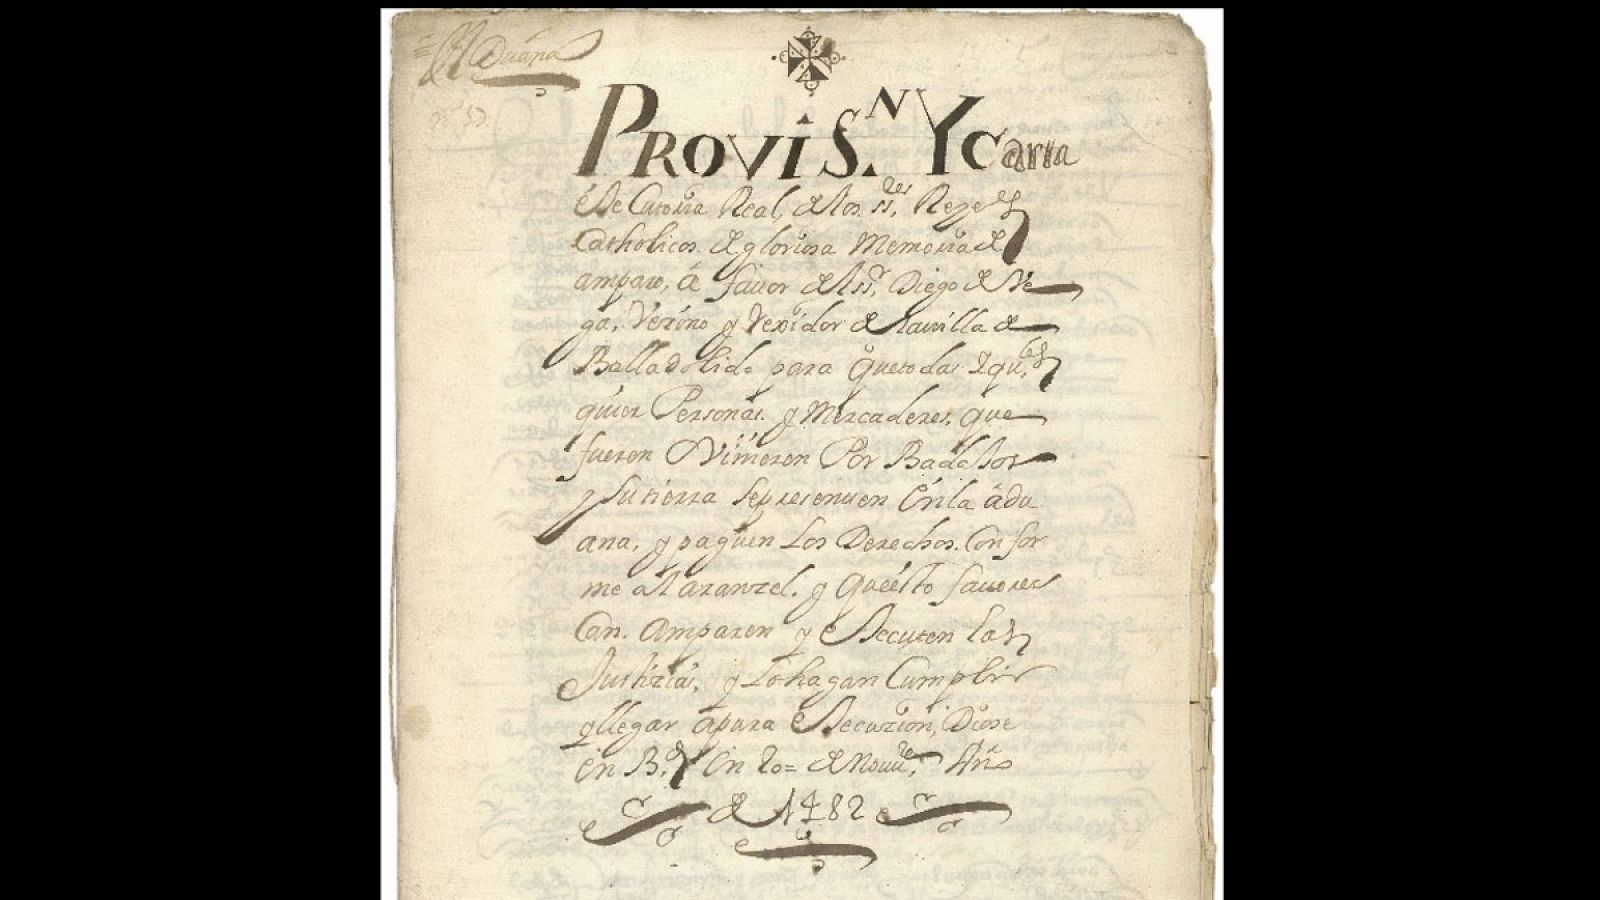 Aduana
PROVISN. Y Carta
éxecutoria Real, de los SSres. Reyes
Catholicos de gloriosa Memoria de
amparo, á favor del Sr. Diego de Ve
ga, Vezino y rexidor de la villa de
Balladolid. para que todas
quier Personas. y Mercaderes. que
fueren O Vinieren Por Badaxos
y su tierra se presenten én la ádu
ana, y paguen Los Derechos. Confor
me al aranzel. y que ésto favorez
Can. Amparen y executen las
Justizias, y Lo hagan Cumplir
y llegar apura execuzion, Diose
en B.d en 20= de Novre. Año
de 1482